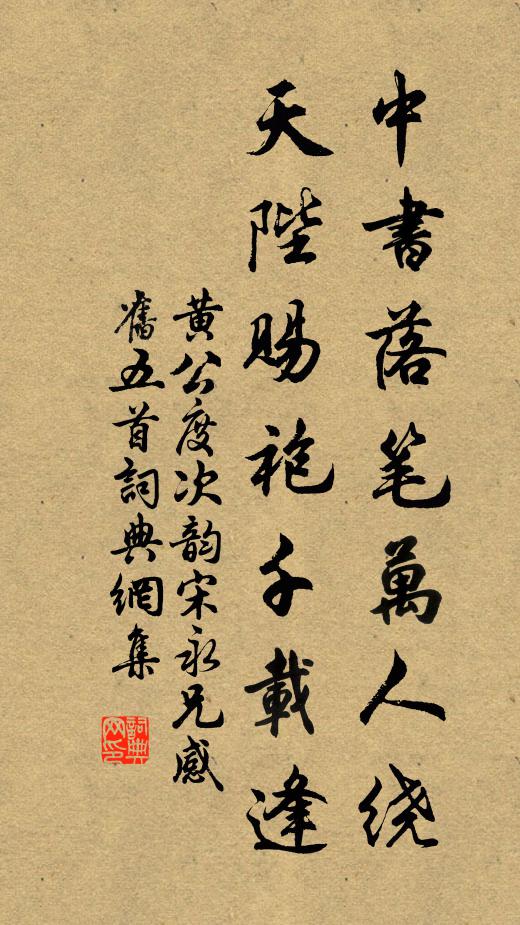 中書落笔萬人绕
天陛賜袍千載逢
黄公度次韵宋永兄感
舊五首詞典網集
詞典网印